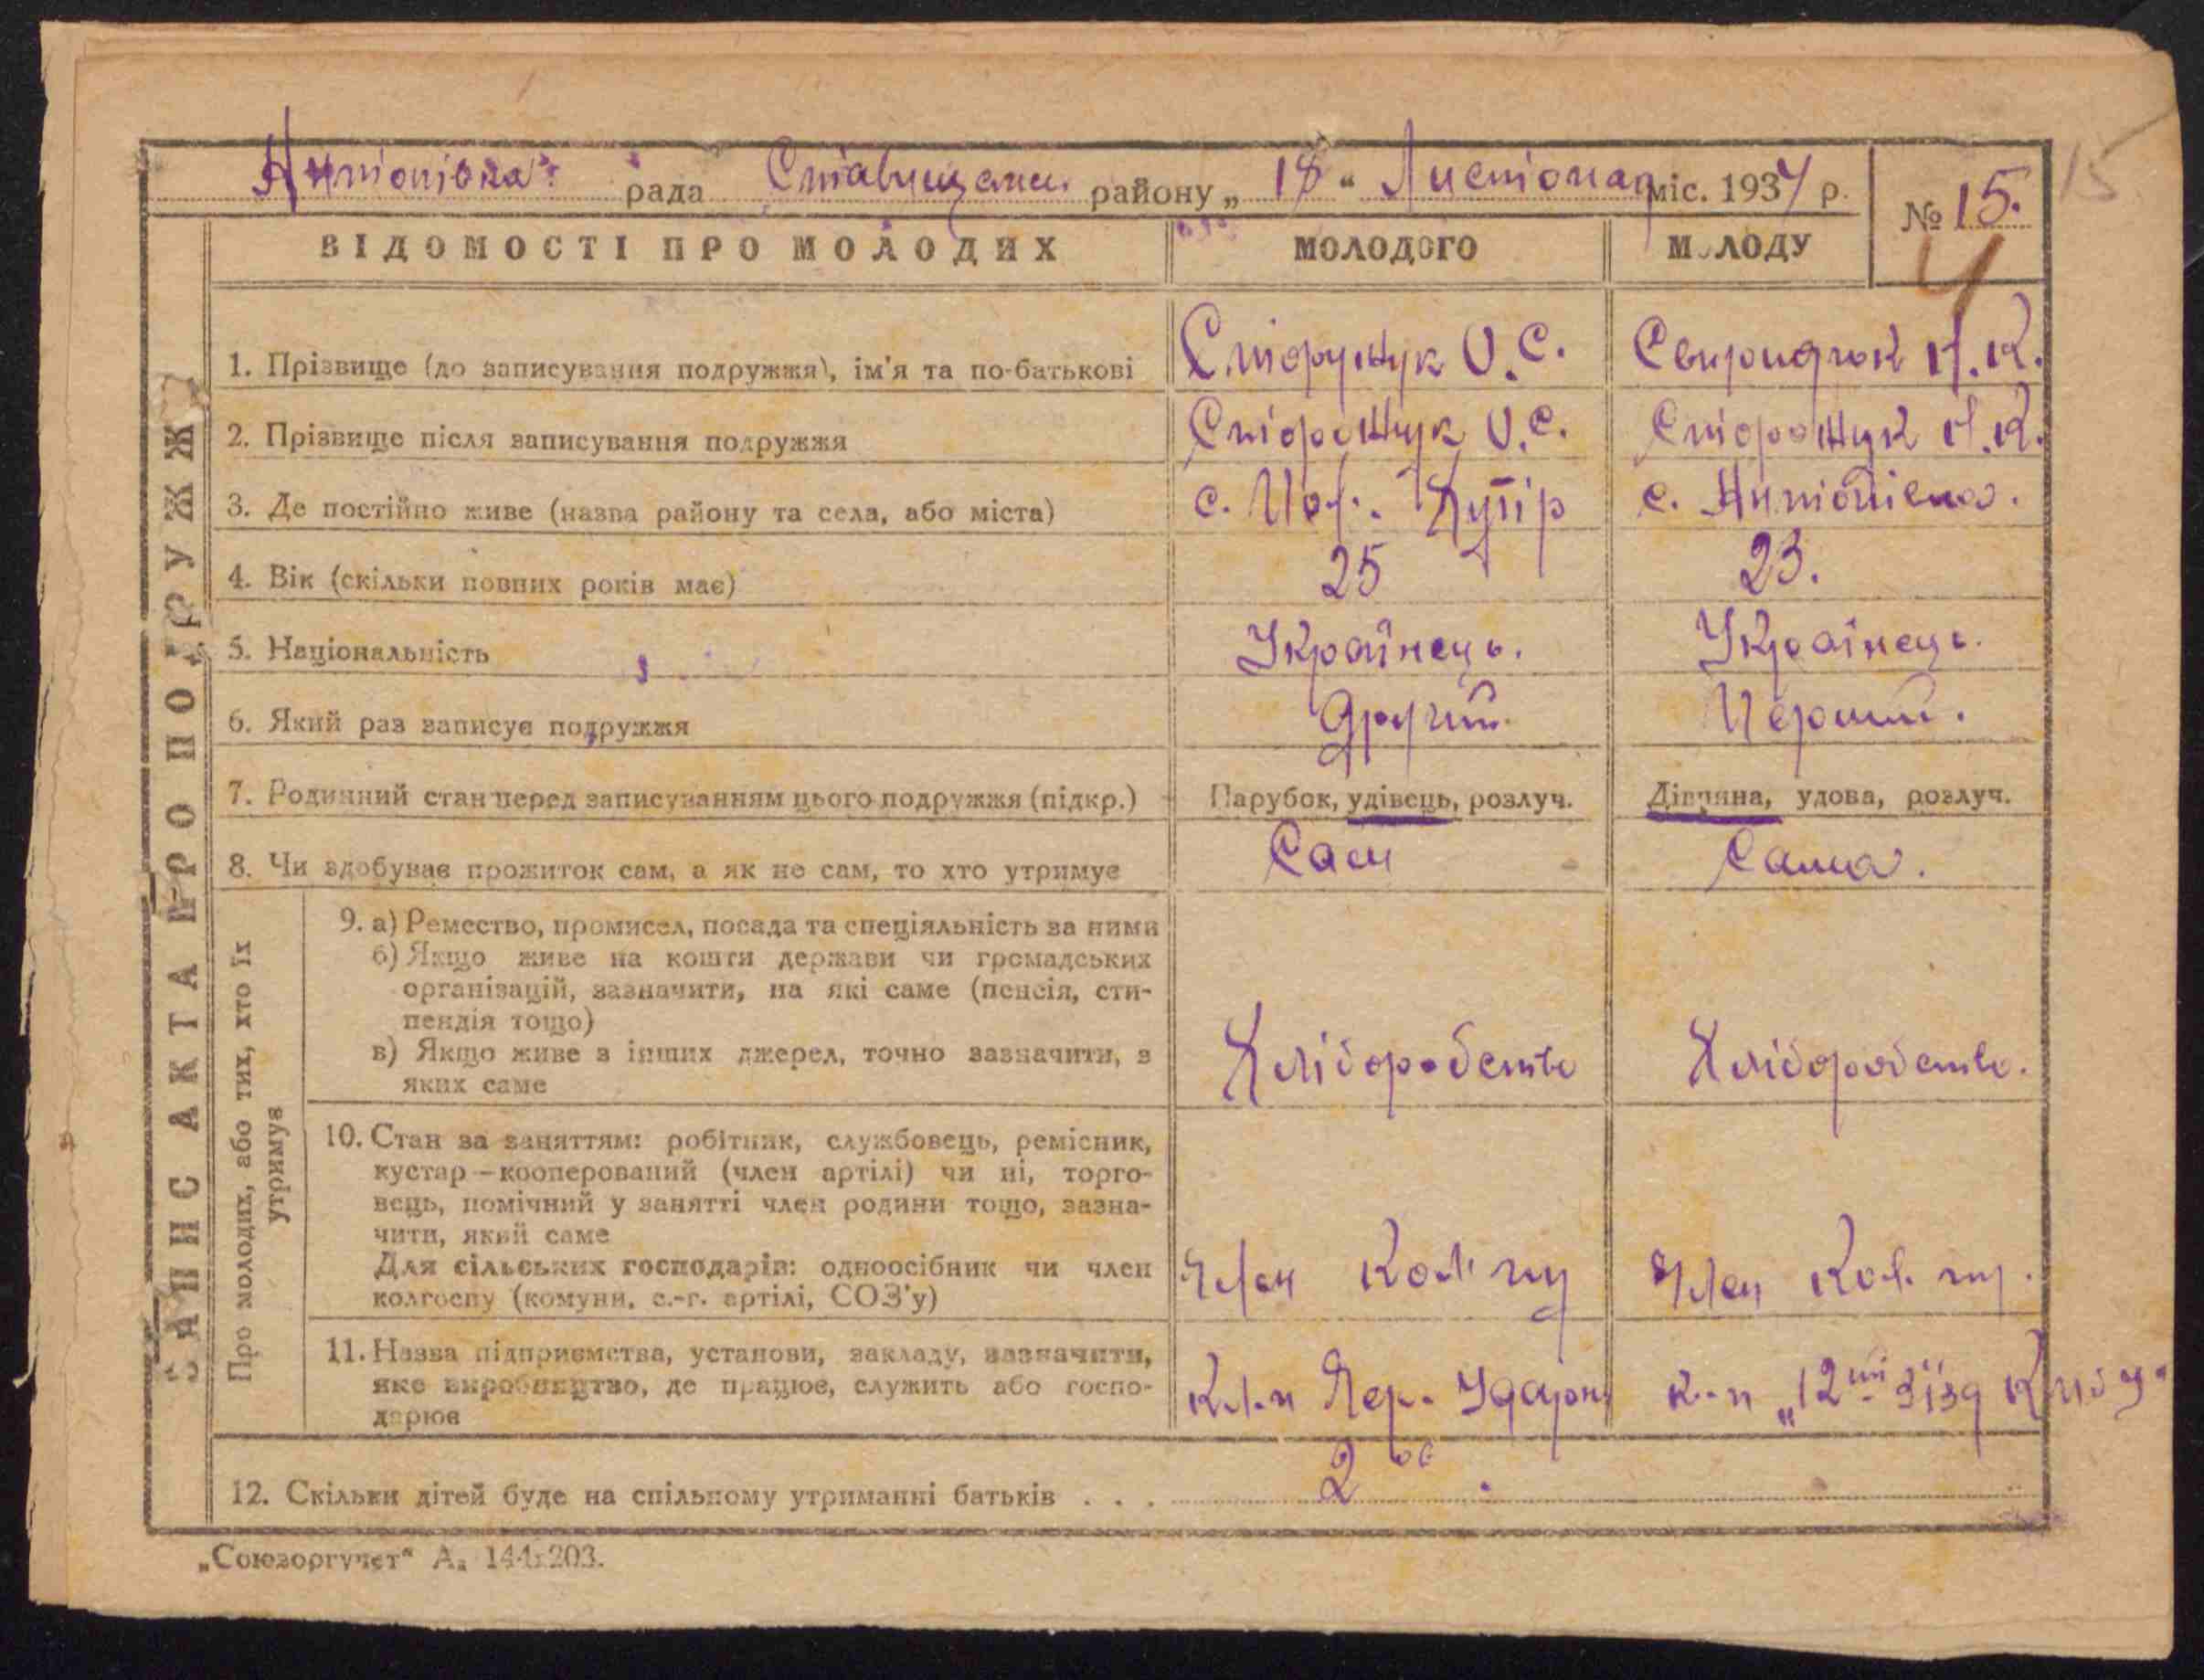 Антонівка рада Ставищан. району „ 18 “ Листопад міс. 1937 р.
№ 15.
15
ВІДОМОСТІ ПРО МОЛОДИХ МОЛОДОГО МОЛОДУ
ЗАПИС АКТА ПРО ПОДРУЖЖЯ
1. Прізвище (до записування подружжя), ім'я та по-батькові Сторожук О.С. Свиридюк Н.К.
2. Прізвище після записування подружжя Сторожук О.С. Сторожук Н.К.
3. Де постійно живе (назва району та села, або міста) с. Пол. Хутір с. Антонівка.
4. Вік (скільки повних років має) 25 23.
5. Національність Українець. Українець.
6. Який раз записує подружжя Другий Перший.
7. Родинний стан перед записуванням цього подружжя (підкр.) Парубок, удівець, розлуч. Дівчина, удова, розлуч.
8. Чи здобуває прожиток сам, а як не сам, то хто утримує Сам Сама.
Про молодих, або тих, хто їх
утримує
9. а) Ремество, промисел, посада та спеціяльність за ними
б) Якщо живе на кошти держави чи громадських
організацій, зазначити, на які саме (пенсія, сти-
пендія тощо)
в) Якщо живе з інших джерел, точно зазначити, з
яких саме
Хліборобство Хліборобство.
10. Стан за заняттям: робітник, службовець, ремісник,
кустар—кооперований (член артілі) чи ні, торго-
вець, помічний у занятті член родини тощо, зазна-
чити, який саме
Для сільських господарів: одноосібник чи член
колгоспу (комуни, с.-г. артілі, СОЗ'у)
Член Кол. гу Член Кол. гу.
11. Назва підприємства, установи, закладу, зазначити,
яке виробництво, де працює, служить або госпо-
дарює
Кл-п Пер. Ударн к-п „12ий зїзд
12. Скільки дітей буде на спільному утриманні батьків . . . 2ое
„Союзоргучет“ А. 144x203.